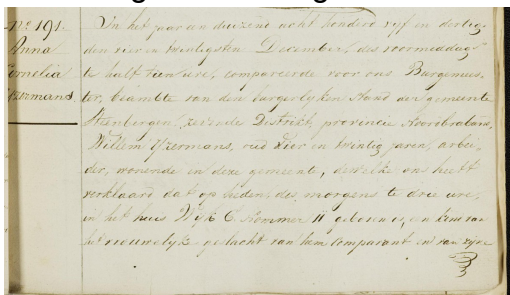 No 191.
Anna
Cornelia
Yzermans
In het jaar een duizend acht honderd vijf en dertig
den vier en twintigsten December, des voormiddags
te half tien ure, compareerde voor ons Burgemees-
ter, beambte van den burgerlyken stand der gemeente
Steenbergen, zevende Distrikt, provincie Noordbraband,
Willem Yzermans, oud vier en twintig jaren, arbei-
der, wonende in deze gemeente, dewelke ons heeft
verklaard dat op heden, des morgens te drie ure,
in het huis Wyk C, Nommer 11 geboren is, een kind van
het vrouwelyk geslacht van hem Comparant en van zyne